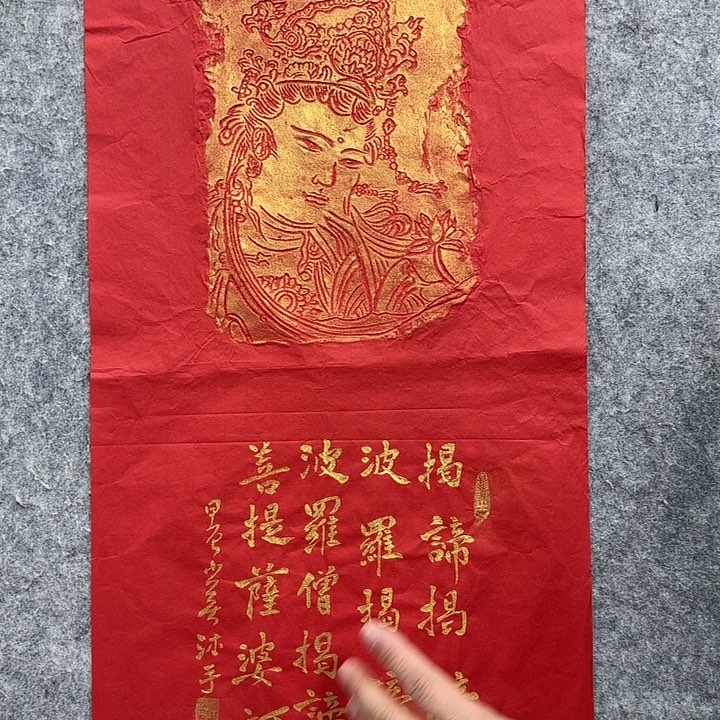 揭諦揭
波羅揭
波羅僧揭諦
菩提薩婆
沐手